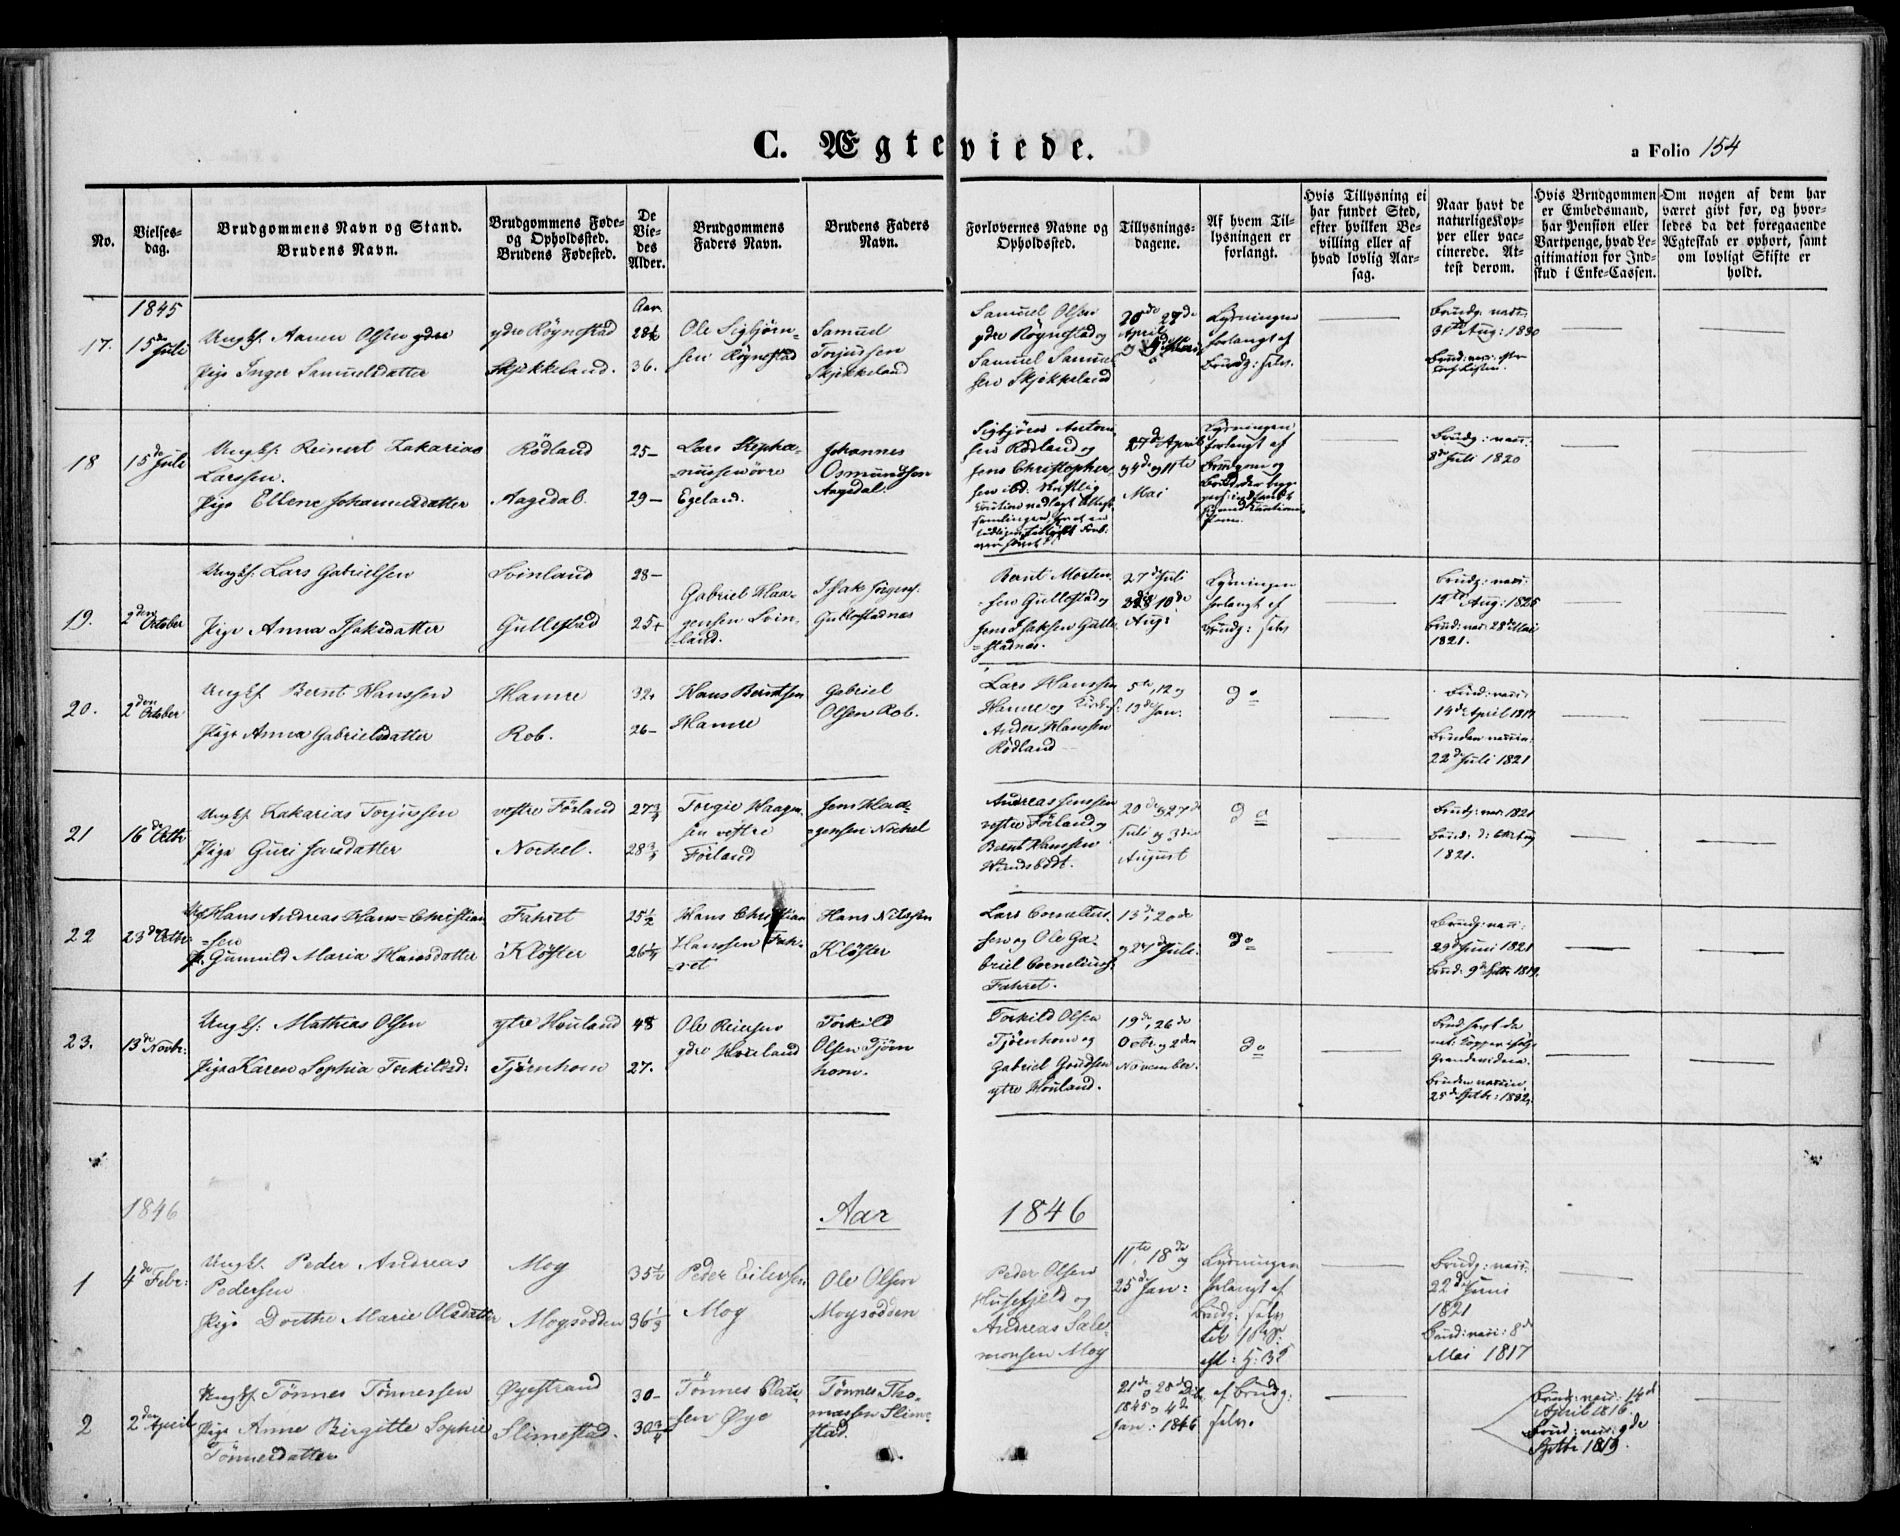 C. Ægteviede.
a Folio 154
No.
Vielses-
dag.
Brudgommens Navn og Stand.
Brudens Navn.
Brudgommens Føde-
og Opholdssted.
Brudens Fødested.
De
Vie-
des
Alder.
Brudgommens
Faders Navn.
Brudens Faders
Navn.
Forlovernes Navne og
Opholdssted.
Tillysnings-
dagene.
Af hvem Til-
lysningen er
forlangt.
Hvis Tillysning ei
har fundet Sted,
efter hvilken Be-
villing eller af
hvad lovlig Aar-
sag.
Naar havt de
naturlige Kop-
per eller vac-
cinerede. At-
test derom.
Hvis Brudgommen
er Embedsmand,
har Pension eller
Vartpenge, hvad Le-
gitimation for Ind-
skud i Enke-Cassen.
Om nogen af dem har
været givt før, og hvor-
ledes da det foregaaende
Ægteskab er ophørt, samt
om lovligt Skifte er
holdt.
1845
Aar.
17.
15de Juli
Ungk. Aanen Olsen ydre
Pige Inger Samuelsdatter
ydre Røynestad
Skjekkeland.
36.
Ole Sigbjørn-
sen Røynestad
Samuel
Torjussen
Skjekkeland
Samuel Olsen
ydre Røynestad og
Samuel Samuel-
sen Skjekkeland
20de 27de
April
Lysningen
forlangt af
Brudg: selv.
Brudg. vacc:
Aug: 1830
18
15de Juli
Ungk. Reinert Zakarias
Larssen.
Pige Ellene Johannesdatter
Rödland
Aagedal.
25-
29-
Lars Stepha-
=nussen øvre
Egeland.
Johannes
Osmundsen
Aagedal.
Sigbjörn Anton-
sen Rödland og
Jens Christopher-
sen ibd.
27de April
og 4de og 11te
Mai
Lysningen
forlangt af
Brudgom og
Brudg: vacc:
8de Juli 1820
19.
2den October
Ungk: Lars Gabrielsen
Pige Anna Isaksdatter
Svinland
Gullestad
28-
25-
Gabriel Haa-
gensen Svin-
land.
Isak Jörgens:
Gullestadnes
Bernt Morten-
sen Gullestad og
Jens Isaksen Gulle-
=stadnes.
27de Juli
3die 10de
Aug:
Lysningen
forlangt af
Brudg: selv
Brudg: vacc:
Brud: vacc: 28de Mai
1821.
20.
2den October
Ungk. Bernt Hanssen
Pige Anna Gabrielsdatter
Hamre
Rob.
32.
26-
Hans Berntsen
Hamre
Gabriel
Olsen Rob.
Lars Hanssen
Hamre og
Anders Hanssen
Rödland
5te, 12 og
19de Jan:
do
14de April 1819
Bruden vaccin:
22de Juli 1821
21
16de Octbr
Ungk. Zakarias Torjussen
Pige Guri Jensdatter
vestre Förland
Nockel.
Torgie Haagen-
sen vestre
Förland
Jens Haa-
gensen Nockel
Andreas Jenssen
vestre Förland og
Bernt Hanssen
20de 27de
Juli og 3die
August
do
Brudg: vac: 1821
1821.
22
23de Octbr:
Hans Andreas Hans=Christian-
=sen
P. Gunnild Maria Hansdatter
Fahret
Kløster
25½
26¼
Hans Christian
Hanssen Fah-
=ret
Hans Nilssen
Kløster
Lars Cornelius-
sen og Ole Ga-
briel Corneliuss:
Fahret.
13de, 20de
og 27de Juli.
do
Brudg: vacc:
29de Juni 1821
23.
13de Novbr:
Ungk: Mathias Olsen
Pige Karen Sophia Torkildsd:
ytre Houland
Tjørnhom
48
27.
Ole Reiersen
ydre Houland
Torkild
Olsen Tjörn
hom.
Torkild Olsen
Tjörnhom og
Gabriel Gundsen
ytre Houland.
19de, 26de
Octr. og 2den
November.
do
Bruden vaccin.
25de Septbr: 1832.
1846
Aar 1846
1
4de Febr:
Ungk. Peder Andreas
Pedersen
Pige Dorthe Marie Olsdatter
Moy
Moysodden
35½
36⅓
Peder Eilersen
Moy
Ole Olsen
Moysodden
Peder Olsen
Husefjeld og
Andreas Sale-
monsen Moy
11te, 18de og
25de Jan:
Lysningen
forlangt af
Brudg: selv
Brudg: vacc:
22de Juni
1821
Brud: vacc: 8de
Mai 1817
2
2den April
Ungk. Tönnes Tönnessen
Pige Anne Birgitte Sophie
Tönnesdatter
Øyestrand
Slimestad.
30-
30¾
Tönnes Clau-
sen Øye
Tönnes Tho-
massen Slime-
stad.
21de 28de Dcbr.
1845 og 4de
Jan: 1846
af Brudg:
selv.
Brudg: vacc: 14de
April 1816
Brud: vacc: 9de
Septbr 1819.